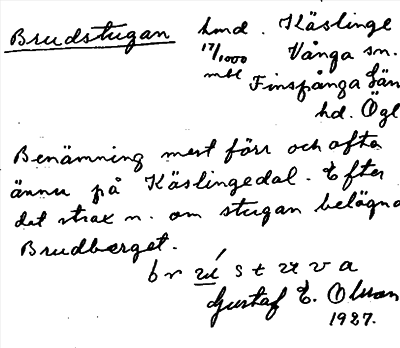 Brudstugan hmd. Käslinge
17/1000 Vånga sn.
mbl Finspånga län
hd. Ögl
Benämning mest förr och ofta
ännu på Käslingedal. Efter
det strax n. om stugan belägna
Brudberget.
Gustaf E. Olsson
1927.